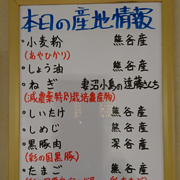 本日の産地情報
・小麦粉 熊谷産
(あやひかり)
・しょう油 熊谷産
・ねぎ 妻沼小島の遠藤さんち
(減農薬特別栽培農産物)
・しいたけ 熊谷産
・しめじ 深谷産
・黒豚肉 深谷産
(彩の国黒豚)
・たまご 熊谷産